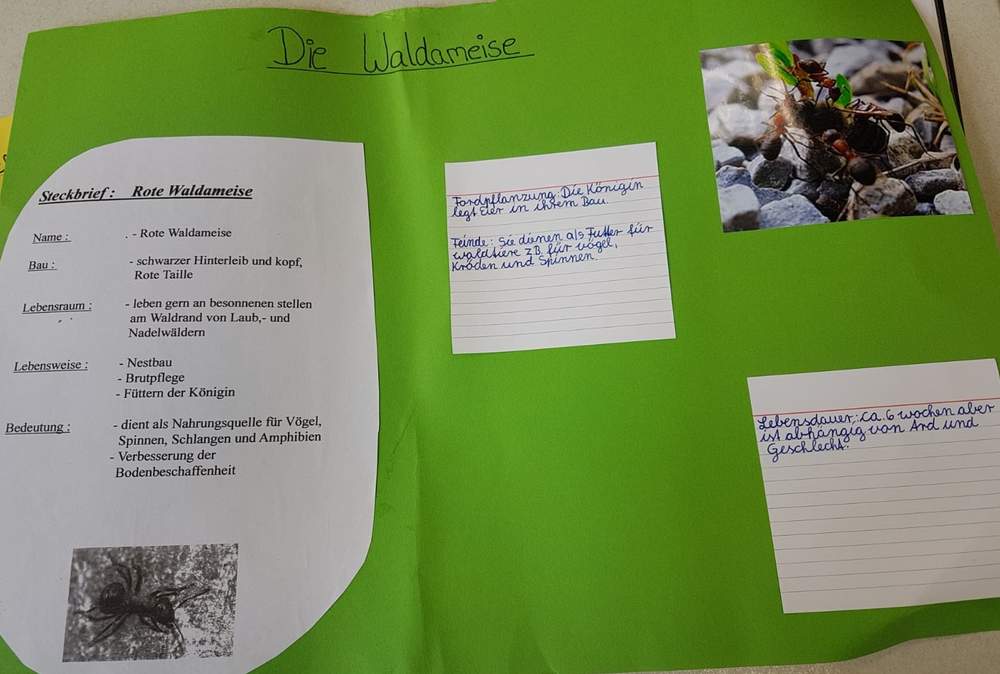 Die Waldameise
Steckbrief : Rote Waldameise
Name : . - Rote Waldameise
Bau : - schwarzer Hinterleib und kopf,
Rote Taille
Lebensraum : - leben gern an besonnenen stellen
am Waldrand von Laub,- und
Nadelwäldern
Lebensweise : - Nestbau
- Brutpflege
- Füttern der Königin
Bedeutung : - dient als Nahrungsquelle für Vögel,
Spinnen, Schlangen und Amphibien
- Verbesserung der
Bodenbeschaffenheit
Fordpflanzung: Die Königin
legt eier in ihrem Bau.
Feinde: Sie dienen als Futter für
waldtiere z.B. für vögel,
Kröden und Spinnen.
Lebensdauer: ca. 6 wochen aber
ist abhängig von Ard und
Geschlecht.